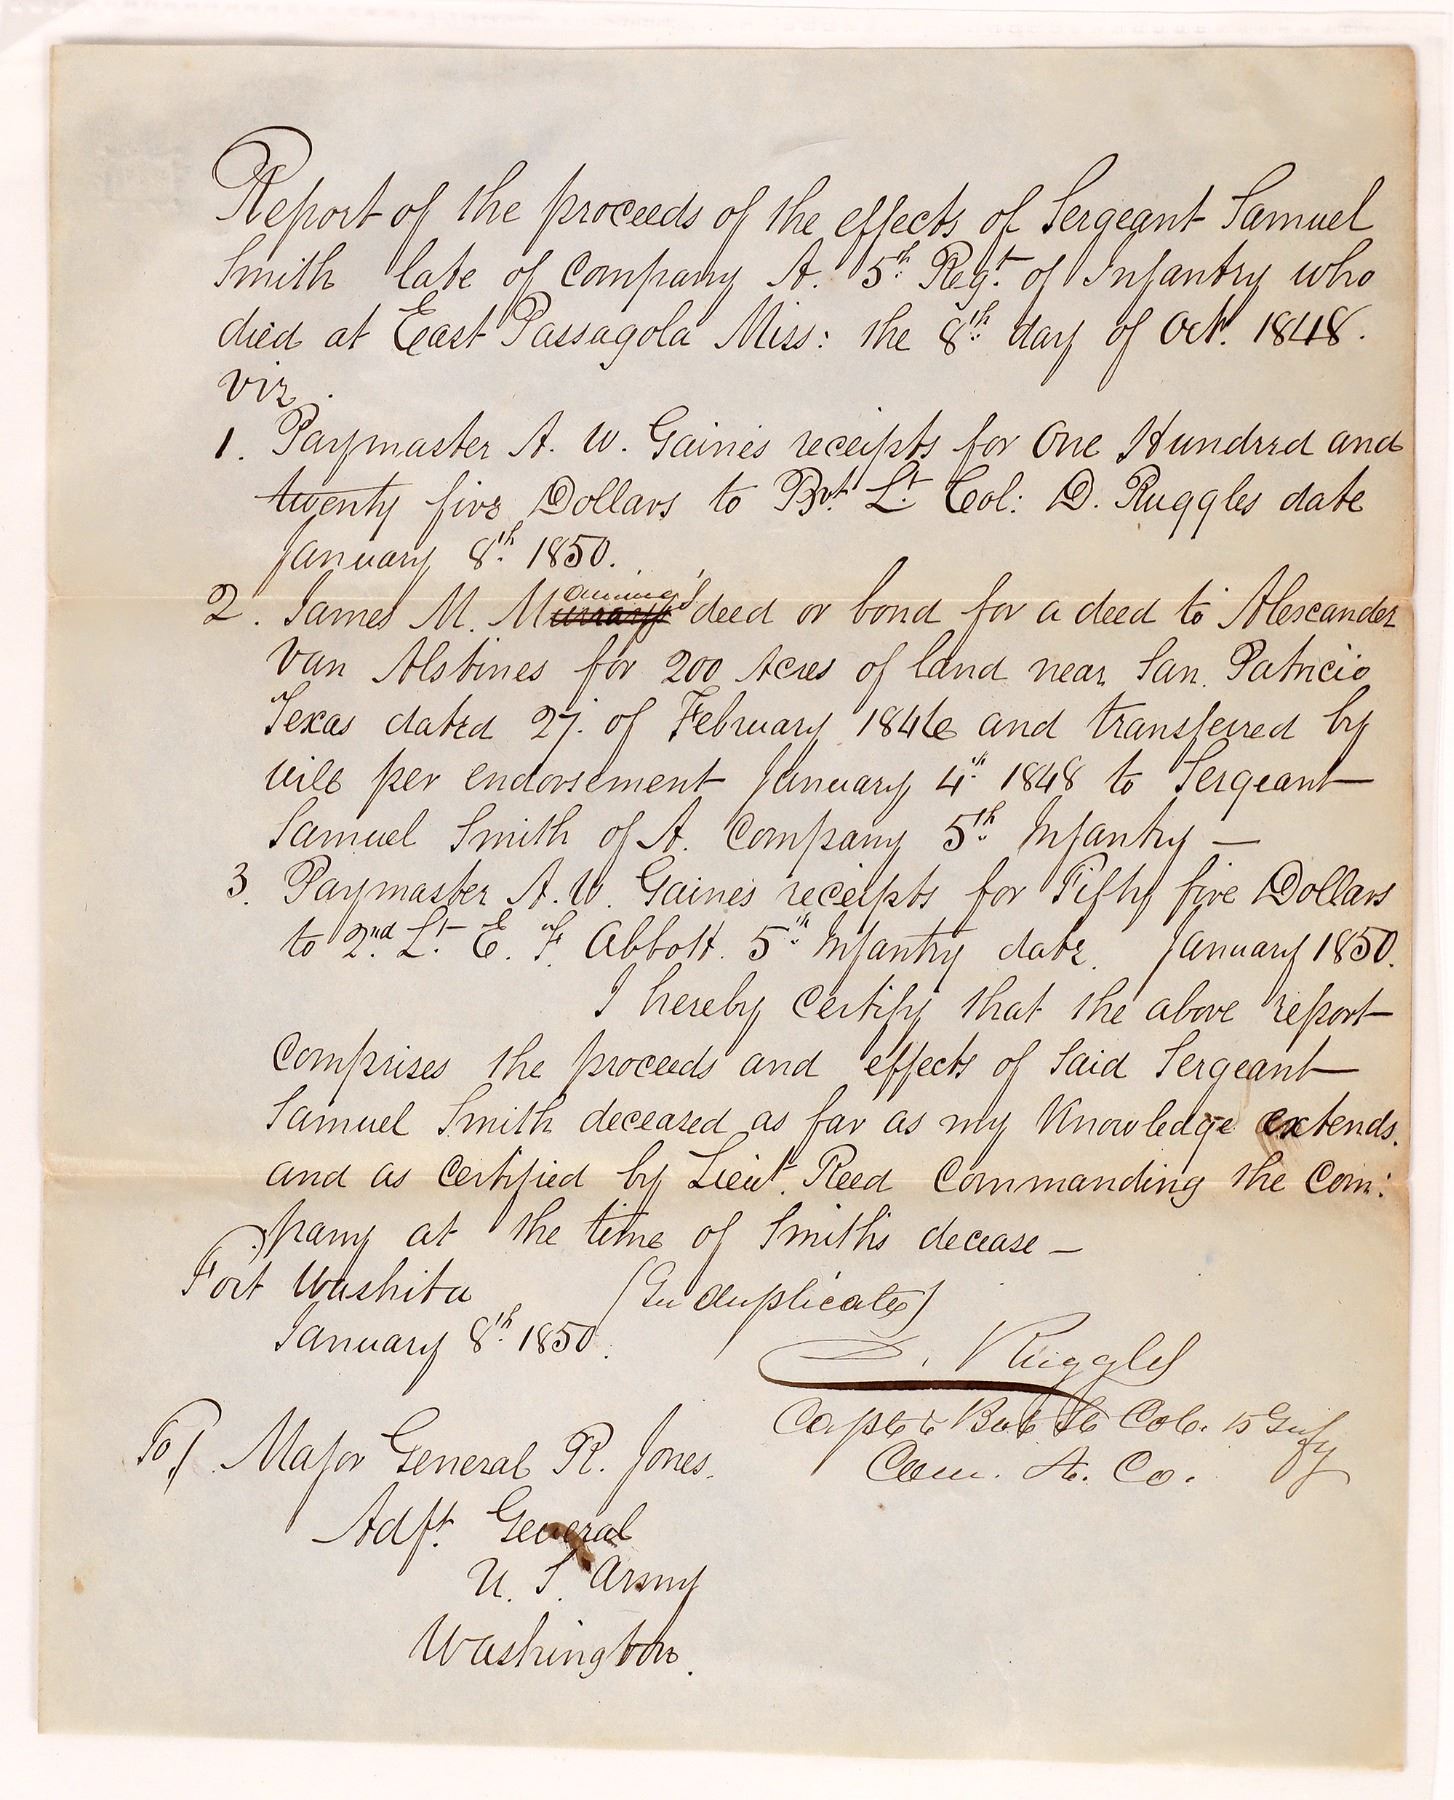 Report of the proceeds of the effects of Sergeant Samuel
Smith late of Company A. 5th Regt. of Infantry who
died at East Passagola Miss: the 8th day of Oct. 1848.
viz.
1. Paymaster A. W. Gaines receipts for One Hundred and
twenty five Dollars to Bvt. Lt. Col: D. Ruggles date
January 8th 1850.
2. James M. M deed or bond for a deed to Alexcander
Van Alstines for 200 Acres of land near San. Patricio
Texas dated 27. of February 1846 and transferred by
will per endorsement January 4th 1848 to Sergeant
Samuel Smith of A. Company 5th Infantry —
3. Paymaster A. W. Gaines receipts for Fifty five Dollars
to 2nd Lt. E. F. Abbott. 5th Infantry date. January 1850.
I hereby certify that the above report
comprises the proceeds and effects of Said Sergeant
Samuel Smith deceased as far as my Knowledge extends.
and as certified by Lieut. Reed Commanding the Com:
pany at the time of Smith's decease —
Fort Washita (In duplicate)
January 8th 1850.
D. Ruggles
Capt & Bvt Lt Col. 5 Infy
Com. A. Co.
To/ Major General R. Jones.
Adjt. General
U. S. Army
Washington.